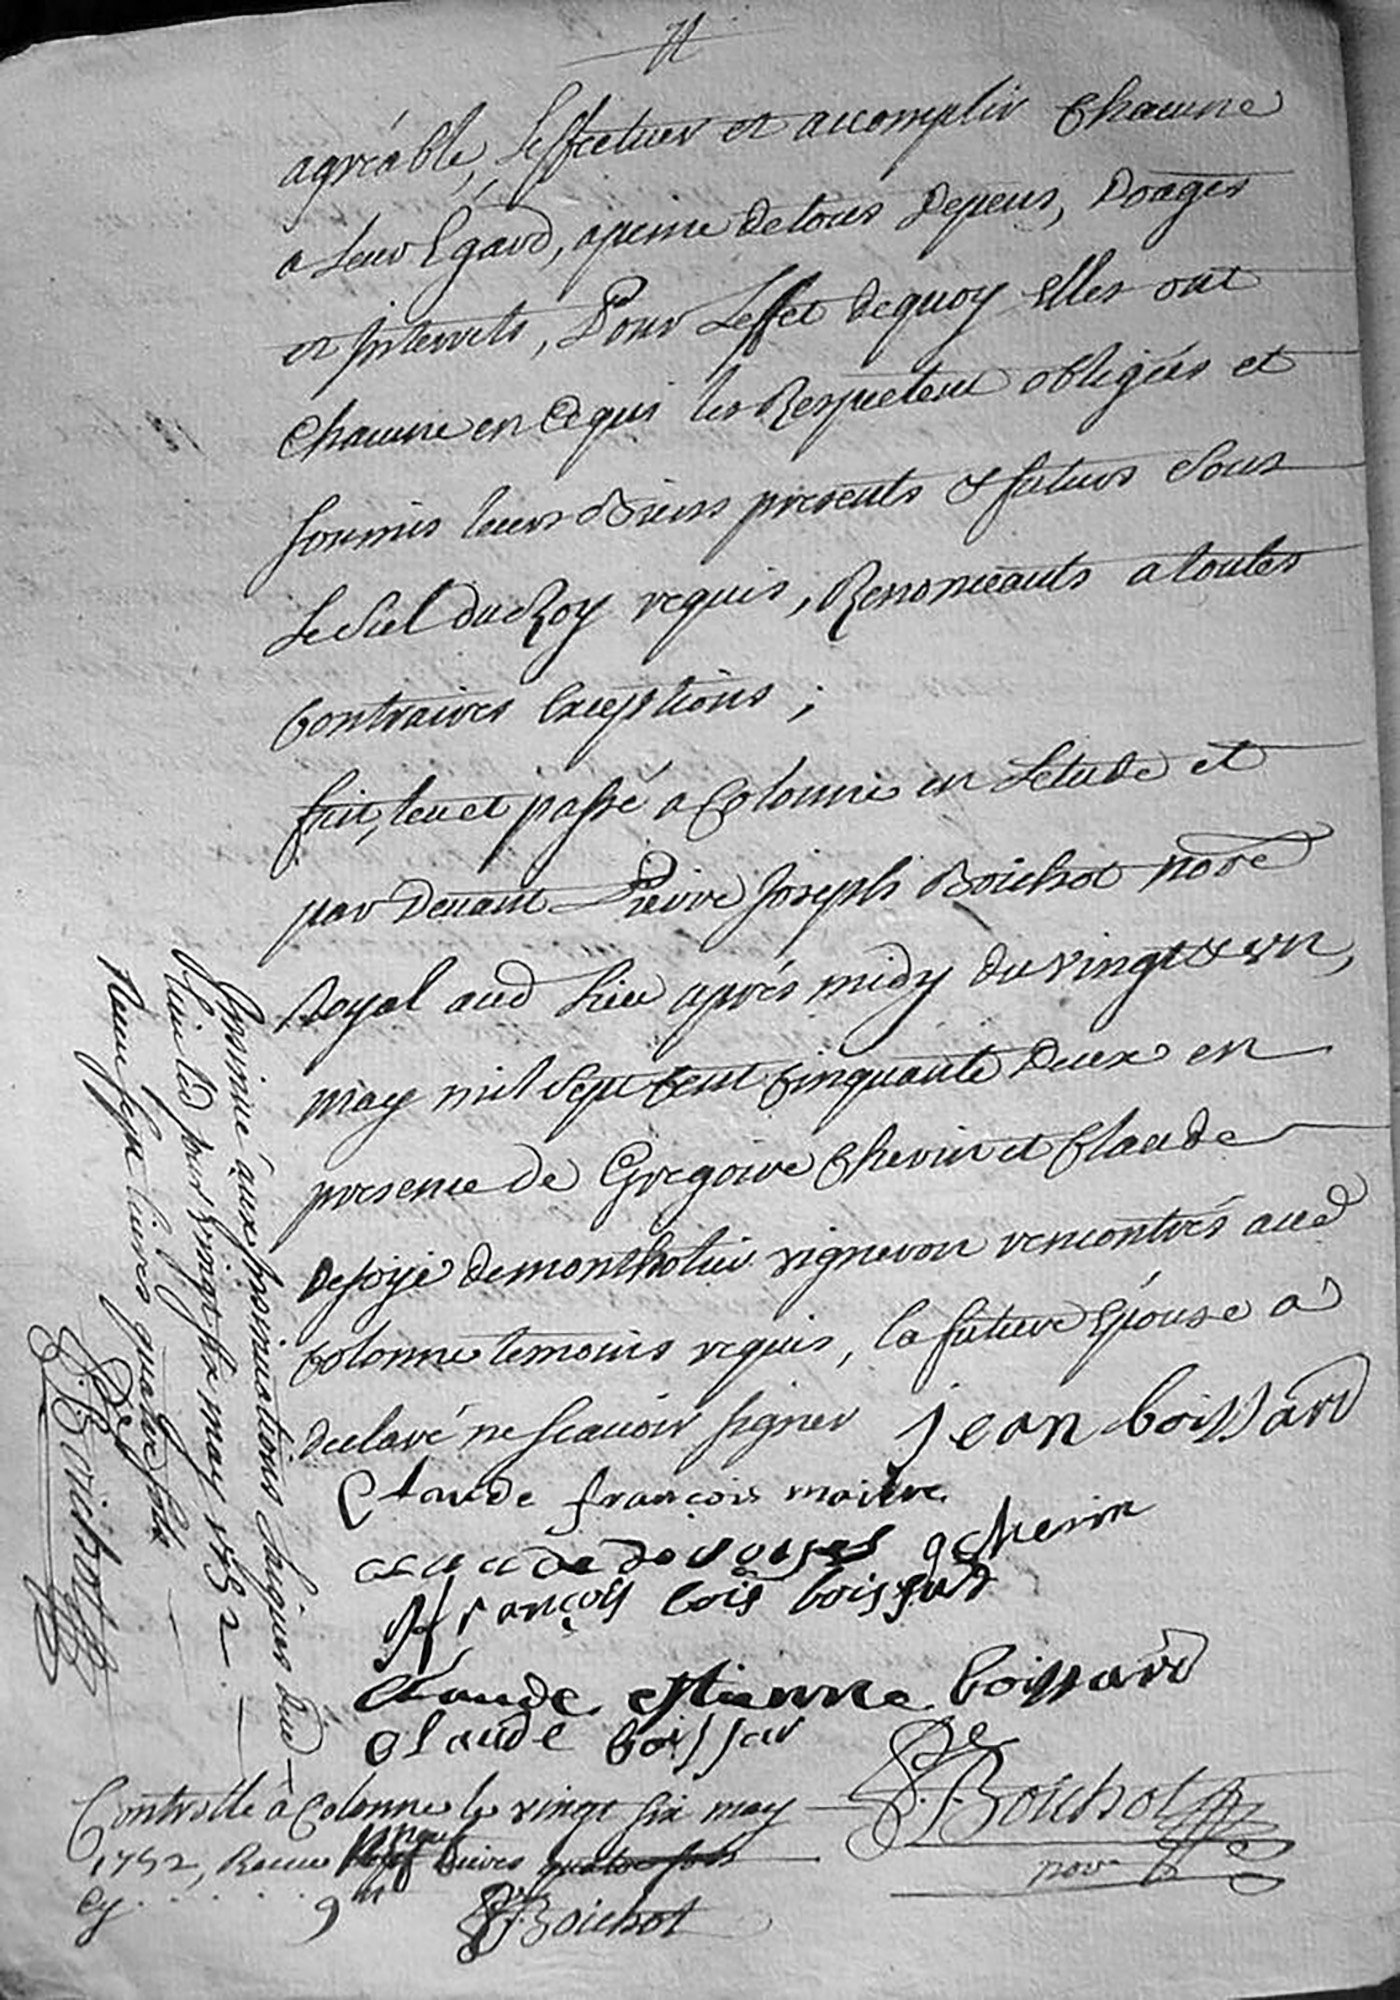 agréable, Leffectuer et accomplir Chacune
a Leur Egard, apeine detous depens, Doages
et Interrets, Pour Leffet dequoy elles ont
Chacune en Cequi les Respecteut obligées et
soumis leurs Biens presents & futurs Sous
Le Scel du Roy requis, Renonceants a toutes
Contraires Exceptions ;
fait, leu et passé a Colonne en Letude et
par Devant Pierre Joseph Boichot nore
Royal aud Lieu aprés midy du vingt & un,
may mil Sept Cent Cinquante Deux en
presence de Gregoire Chevin et Claude
demontholier vigneron rencontrés aud
Colonne temoins requis, la future Epouse a
declaré ne scauoir signer jean boissard
Claude françois maitre
gchevin
françois boissard
Claude estienne boissard
claude boissar
P.J. Boichot
nore
Controllé a Colonne le vingt six may
1752, Receu neuf Livres
Cy . . . . . . . 9
P.J. Boichot
Insinué aux Insinuations Laiques dud
Lieu led jour vingt six may 1752
Receu sept livres quatre sols
P.J. Boichot